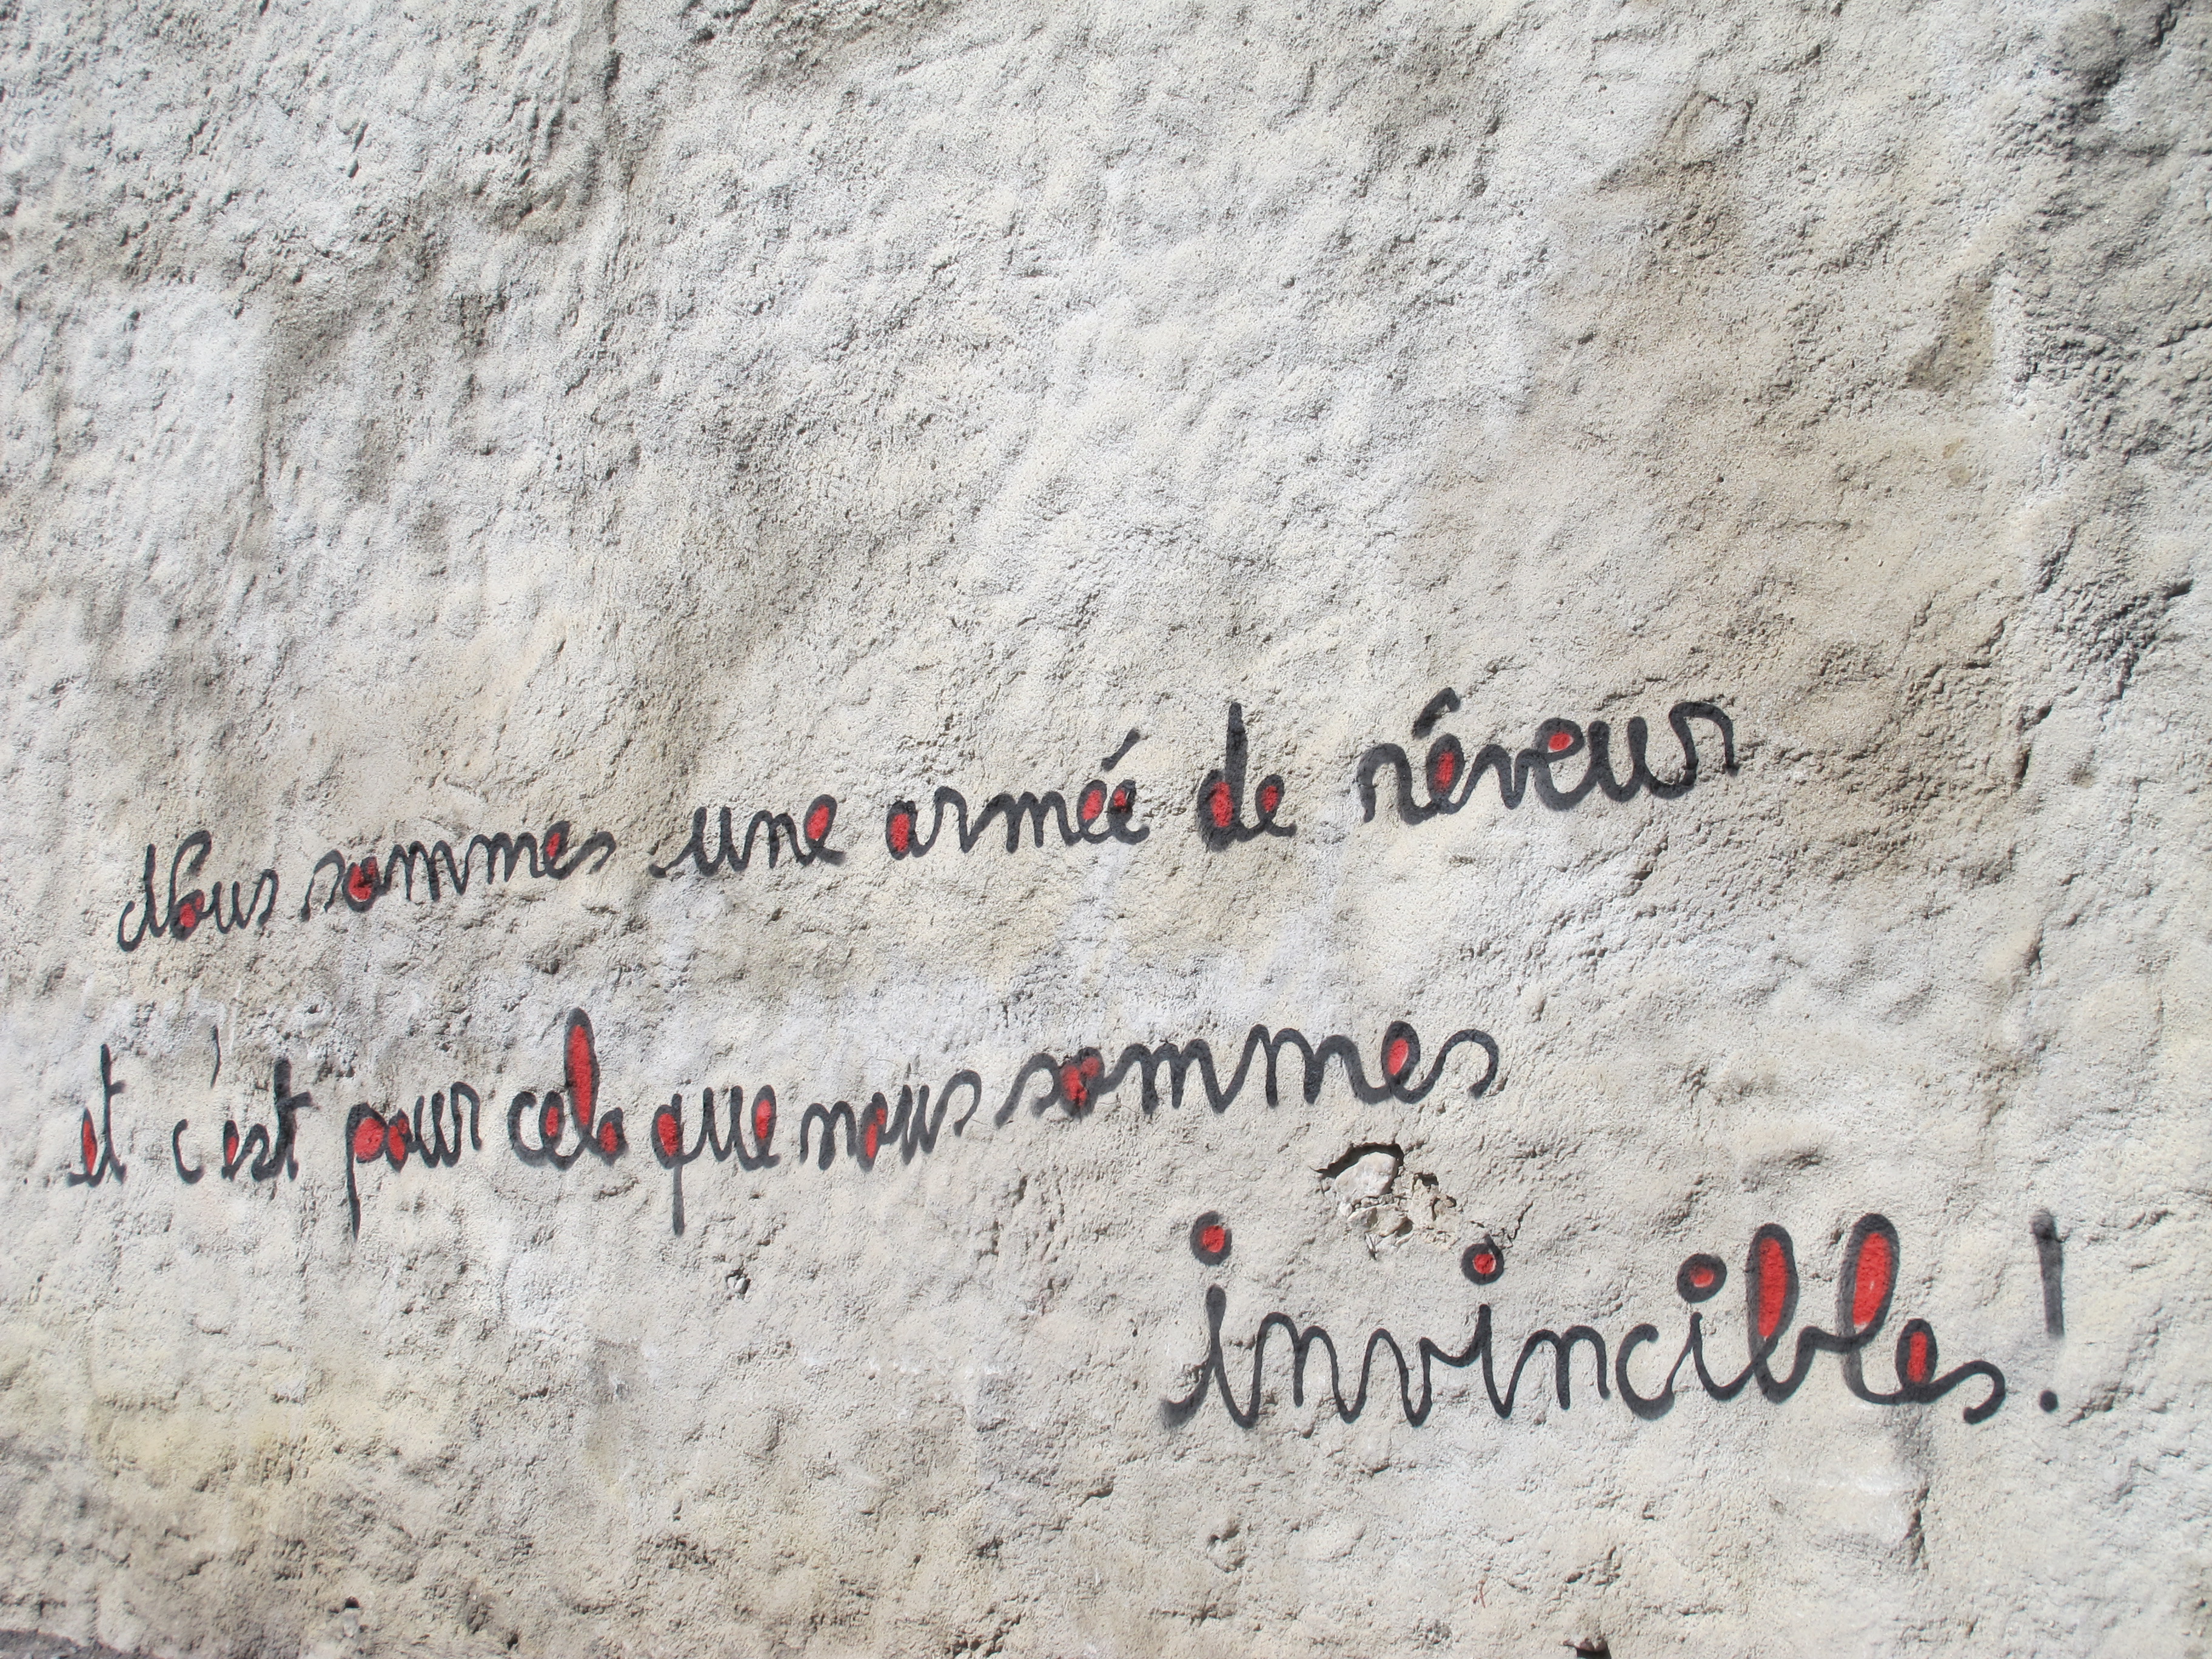 Nous sommes une armée de rêveur
et c'est pour cela que nous sommes
invincibles !